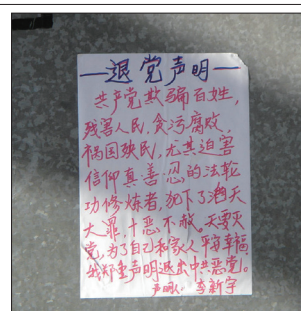 退党声明
共产党欺骗百姓，
残害人民，贪污腐败，
祸国殃民，尤其迫害
信仰真·善·忍的法轮
功修炼者，犯下了滔天
大罪，十恶不赦。天要灭
党，为了自己和家人平安幸福
我郑重声明退出中共恶党。
声明人：李新宇